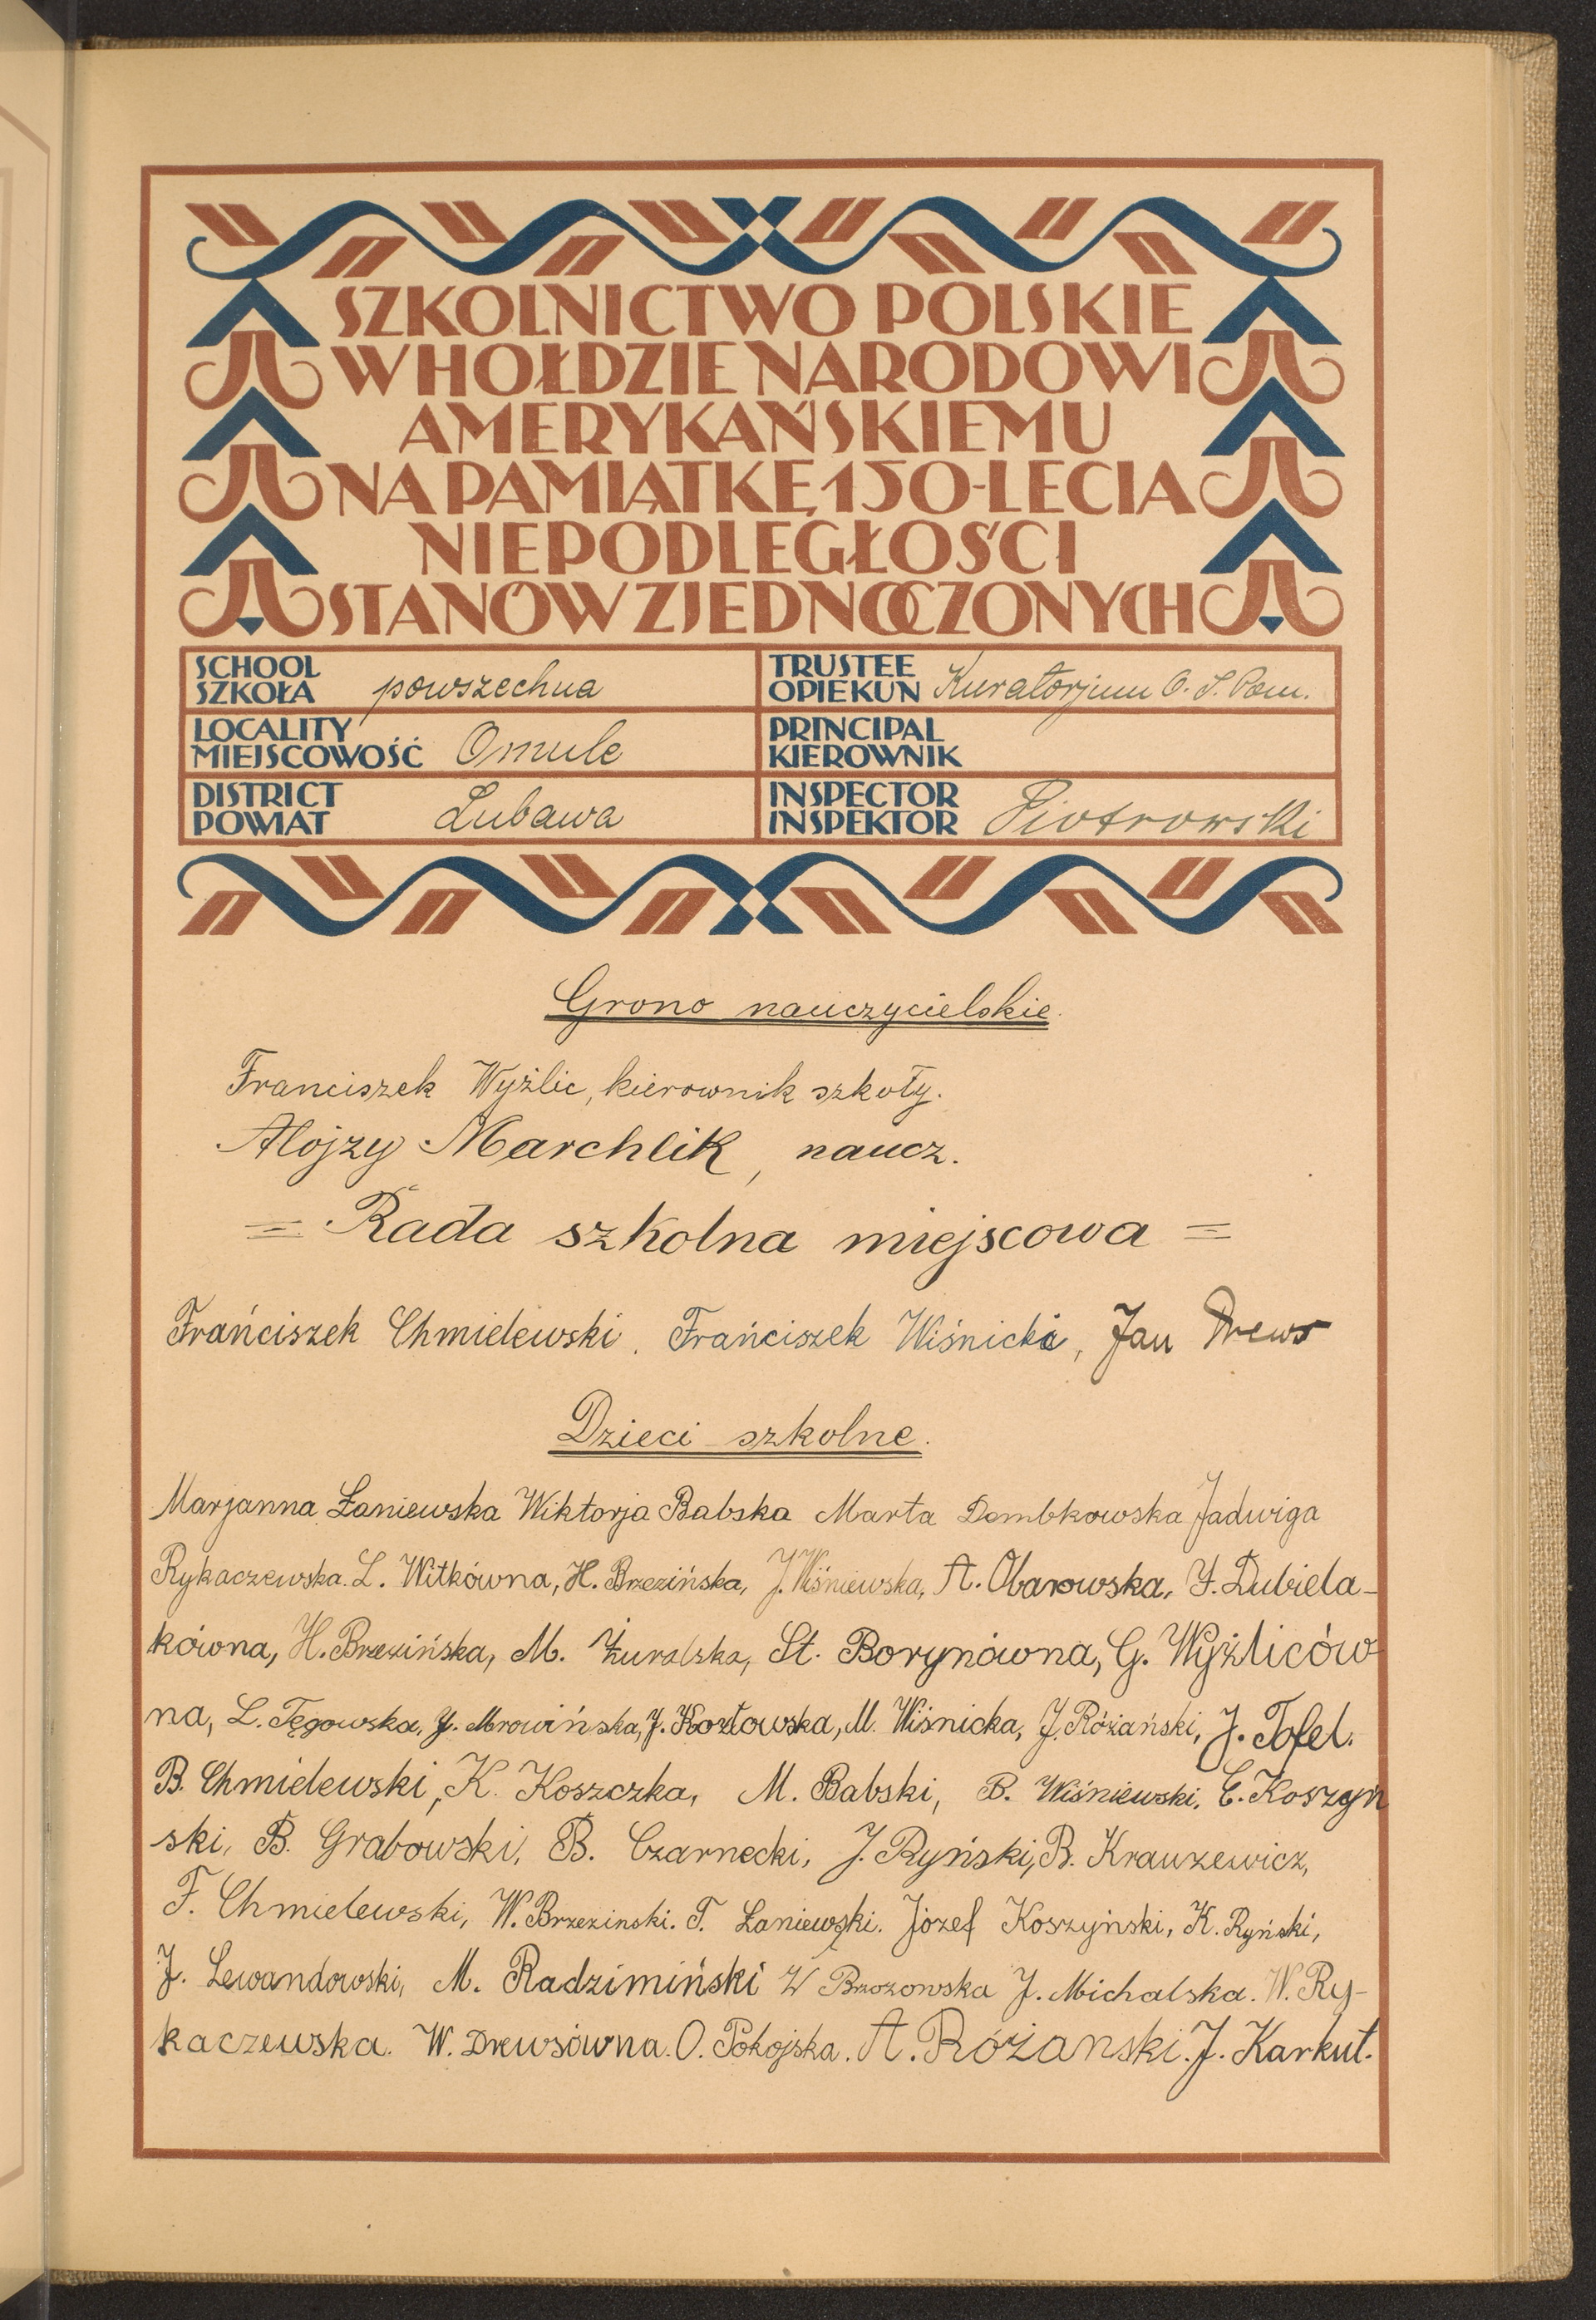 SZKOLNICTWO POLSKIE
W HOŁDZIE NARODOWI
AMERYKAŃSKIEMU
NA PAMIĄTKĘ 150-LECIA
NIEPODLEGŁOŚCI
STANÓW ZJEDNOCZONYCH
SCHOOL
SZKOŁA powszechna
TRUSTEE
OPIEKUN Kuratorjum O. S. Pom.
LOCALITY
MIEJSCOWOŚĆ Omule
PRINCIPAL
KIEROWNIK
DISTRICT
POWIAT Lubawa
INSPECTOR
INSPEKTOR Piotrowski
Grono nauczycielskie.
Franciszek Wyżlic, kierownik szkoły.
Alojzy Marchlik, naucz.
= Rada szkolna miejscowa =
Frańciszek Chmielewski. Frańciszek Wiśnicki, Jan Drews
Dzieci szkolne.
Marjanna Łaniewska Wiktorja Babska Marta Dembkowska Jadwiga
Rykaczewska. L. Witkówna, H. Brzezińska, J. Wiśniewska, A. Obarowska, J. Dubiela-
kówna, H. Brzezińska, M. Żuralska, St. Borynówna, G. Wyżliców
na, L. Tęgowska, J. Mrowińska, J. Kozłowska, M. Wiśnicka, J. Różański, J. Tofel.
B. Chmielewski, K. Koszczka, M. Babski, B. Wiśniewski, E. Koszyń
ski, B. Grabowski, B. Czarnecki, J. Ryński, B. Krauzewicz,
F. Chmielewski, W. Brzezinski. T. Łaniewski. Józef Koszyński, K. Ryński,
J. Lewandowski, M. Radzimiński W Brzozowska J. Michalska. W. Ry-
kaczewska. W. Drewsówna. O. Pokojska. A. Różanski. J. Karkut.